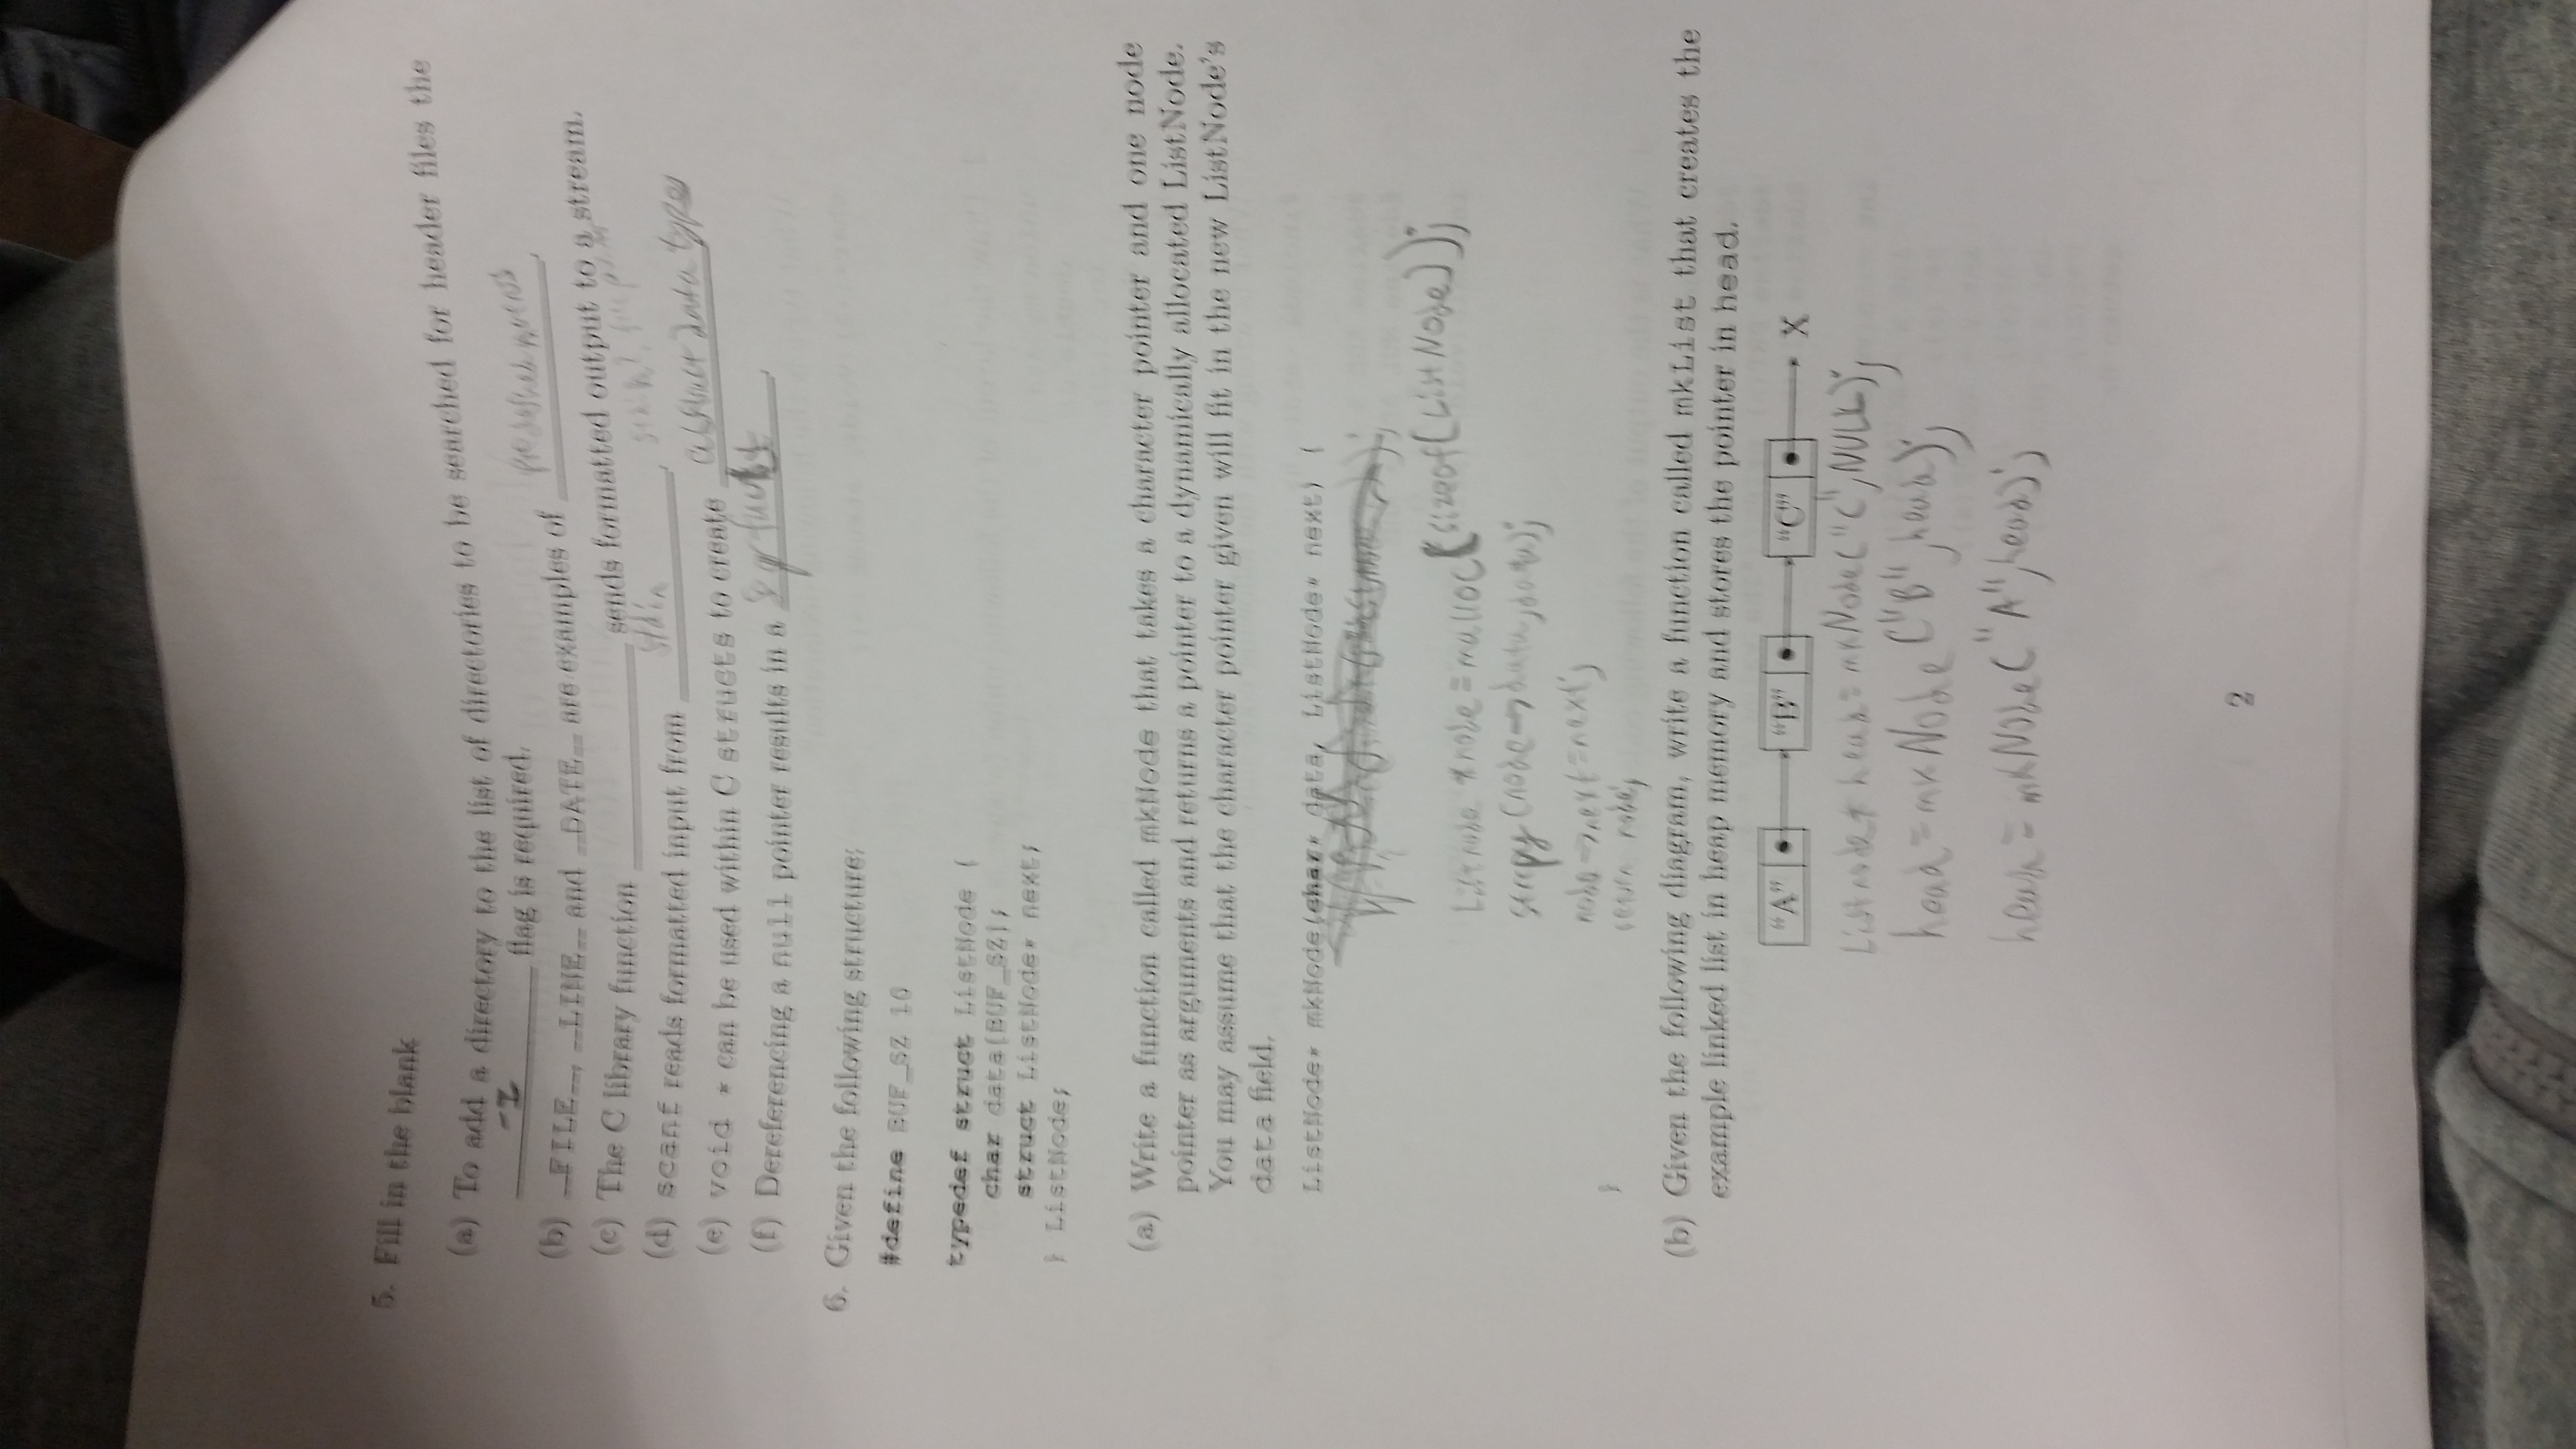 5. Fill in the blank
(a) To add a directory to the list of directories to be searched for header files the
-I flag is required.
(b) __FILE__, __LINE__ and __DATE__ are examples of predefined macros.
(c) The C library function ____ sends formatted output to a stream.
(d) scanf reads formatted input from stdin.
(e) void * can be used within C structs to create abstract data types
(f) Dereferencing a null pointer results in a
6. Given the following structure:
#define BUF_SZ 10
typedef struct ListNode {
char data[BUF_SZ];
struct ListNode* next;
} ListNode;
(a) Write a function called mkNode that takes a character pointer and one node
pointer as arguments and returns a pointer to a dynamically allocated ListNode.
You may assume that the character pointer given will fit in the new ListNode's
data field.
ListNode* mkNode(char* data, ListNode* next) {
Listnode *node = malloc(sizeof(ListNode));
strcpy(node->data, data);
node->next=next;
return node;
}
(b) Given the following diagram, write a function called mkList that creates the
example linked list in heap memory and stores the pointer in head.
"A" "B" "C" X
Listnode* head = mkNode("C", NULL);
head = mkNode("B", head);
head = mkNode("A", head);
2